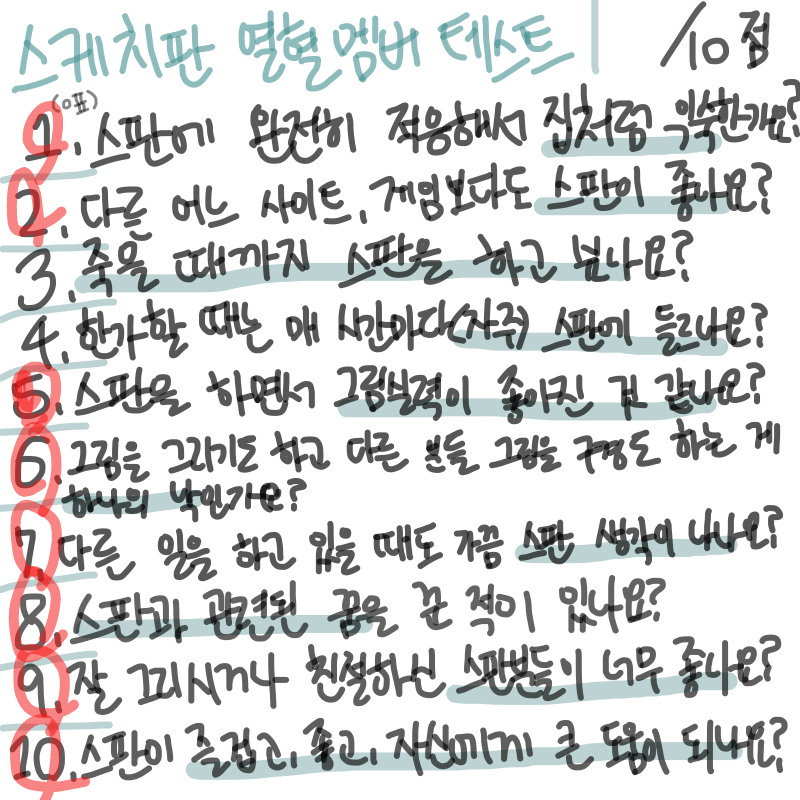 스케치판 열혈멤버 테스트 /10점
(이푶)
1. 스판에 완전히 적응해서 집처럼 익숙한가요?
2. 다른 어느 사이트, 게임보다도 스판이 좋나요?
3. 죽을 때까지 스판을 하고 싶나요?
4. 한가할 때는 매 시간마다(자주) 스판에 들르나요?
5. 스판을 하면서 그림실력이 좋아진 것 같나요?
6. 그림을 그리기도 하고 다른 분들 그림을 구경도 하는 게
하나의 낙인가요?
7. 다른 일을 하고 있을 때도 가끔 스판 생각이 나나요?
8. 스판과 관련된 꿈을 꾼 적이 있나요?
9. 잘 그리시거나 친절하신 스판분들이 너무 좋나요?
10. 스판이 즐겁고, 좋고, 자신에게 큰 도움이 되나요?